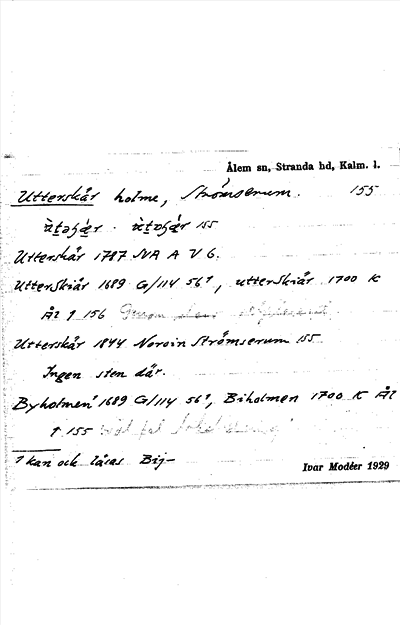 Ålem sn, Stranda hd, Kalm. l.
Utterskär holme, Strömserum. 155
155
Utterskär 1787 NA A V 6.
Utterskiär 1689 G/114 56¹, utterskiär 1700 K
Ål 1 156
Utterskär 1844 Nordin Strömserum 155
Ingen sten där.
Byholmen¹ 1689 G/114 56¹, Biholmen 1700 K Ål
1 155
¹ kan ock läsas Bij-
Ivar Modéer 1929